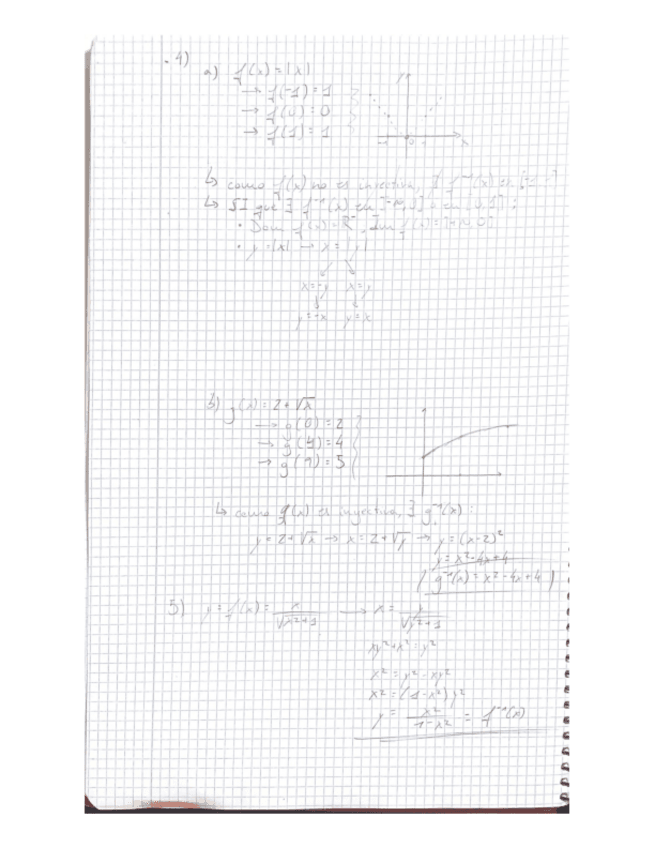 4)
a) f(x) = |x|
→ f(-1) = 1
→ f(0) = 0
→ f(1) = 1
↳ como f(x) no es inyectiva, ∄ f⁻¹(x) en
↳ SI que ∃ f⁻¹(x) en
• Dom f(x) = , Im f(x) =
• y = |x| → x = |y|
x = -y x = y
y = -x y = x
b) g(x) = 2 + √x
→ g(0) = 2
→ g(4) = 4
→ g(9) = 5
↳ como g(x) es inyectiva, ∃ g⁻¹(x):
y = 2 + √x → x = 2 + √y → y = (x-2)²
y = x² - 4x + 4
(g⁻¹(x) = x² - 4x + 4)
5) y = f(x) = x/√(x²+1) → x = y/√(y²+1)
xy² + x² = y²
x² = y² - xy²
x² = (1 - x²) y²
y = x²/(1-x²) = f⁻¹(x)